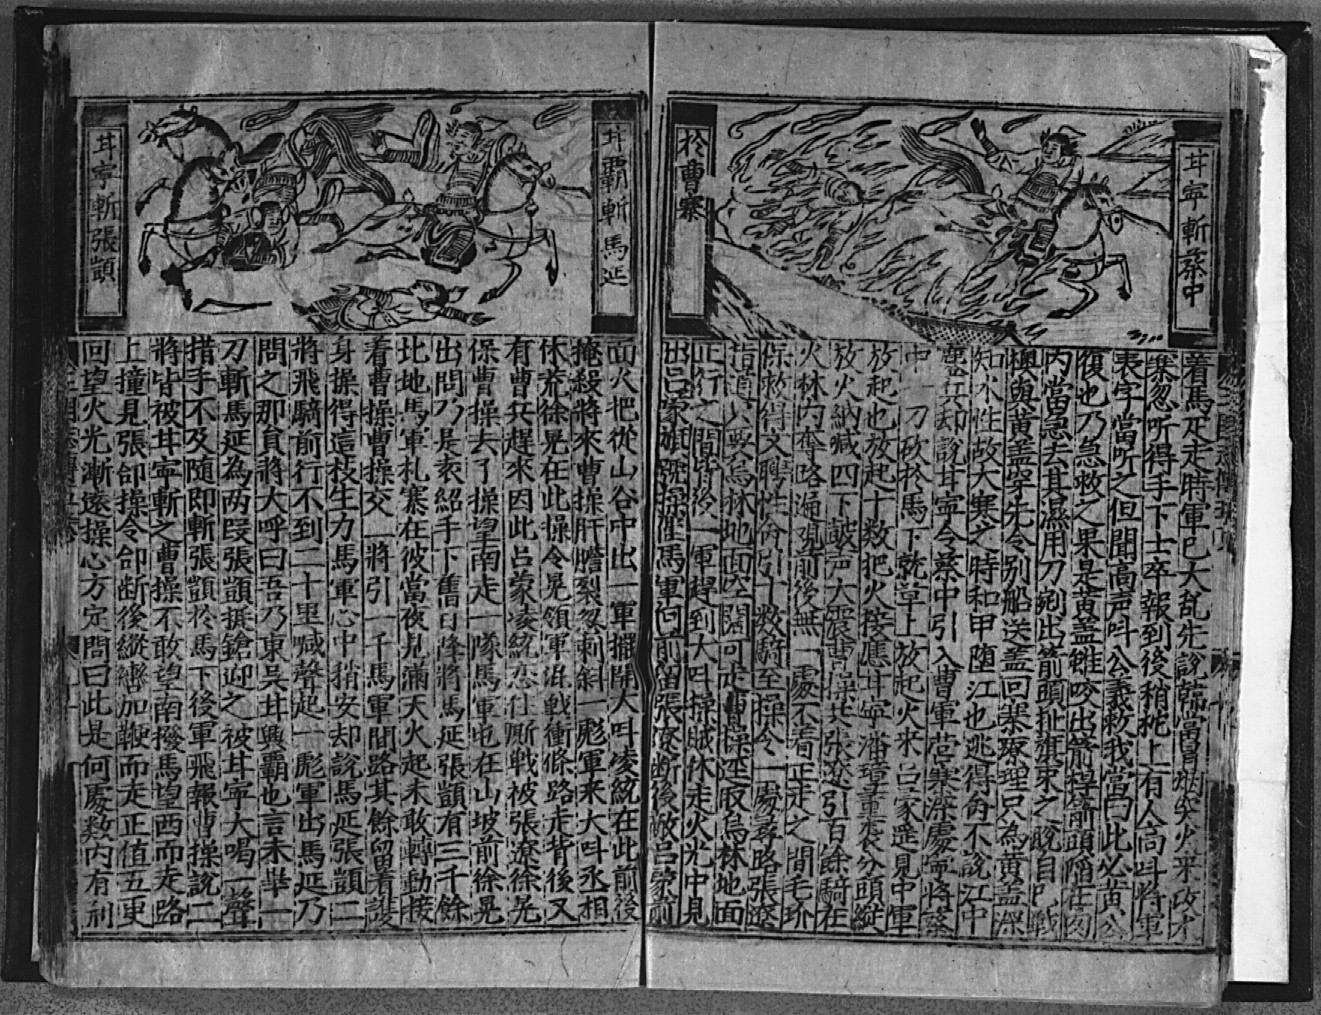 甘寧斬蔡中
於曹寨
着馬疋走時軍已大乱先說韓當冒烟突火來攻水
寨忽听得手下士卒報到後稍舵上有人高叫將軍
表字當听之但聞高声叫公義救我當曰此必黄公
復也乃急救之果是黄盖雖咬出箭桿箭頭陷在肉
内當急去其濕用刀剜出箭頭扯旗束之脱自己戰
襖與黄盖穿先令别船送盖回寨療理只為黄盖深
知水性故大寒之時和甲堕江也逃得命不說江中
鏖兵却說甘寧令蔡中引入曹軍营寨深處寧將蔡
中一刀砍於馬下就草上放起火來吕蒙遥見中軍
放起也放起十数把火接應甘寧潘璋董襲分頭縱
放火納喊四下皷声大震曹操共張遼引百餘騎在
火林内奪路遍觀前後無一處不着正走之間毛玠
保救得文聘性命引十数騎至操令一處尋路張遼
指道只要烏林地面空闊可走曹操逕取烏林地面
正行之間背後一軍趕到大叫操賊休走火光中見
出吕蒙旗號操催馬軍向前留張遼断後敵吕蒙前
甘覇斬馬延
甘寧斬張顗
面火把從山谷中出一軍擺開大叫凌統在此前後
掩殺將來曹操肝膽裂忽刺斜一彪軍来大叫丞相
休荒徐晃在此操令晃領軍混戰衝條路走背後又
有曹兵趕來因此吕蒙凌統恋住厮戦被張遼徐晃
保曹操去了操望南走一隊馬軍屯在山坡前徐晃
出問乃是袁紹手下舊日降將馬延張顗有三千餘
北地馬軍札寨在彼當夜見滿天火起未敢轉動接
着曹操曹操交一將引一千馬軍開路其餘留着護
身操得這枝生力馬軍心中稍安却說馬延張顗二
將飛騎前行不到二十里喊聲起一彪軍出馬延乃
問之那員將大呼曰吾乃東吴甘興覇也言未畢一
刀斬馬延為两段張顗挺鎗迎之被甘寧大喝一聲
措手不及随即斬張顗於馬下後軍飛報曹操說二
將皆被甘寧斬之曹操不敢望南撥馬望西而走路
上撞見張郃操令郃断後縱轡加鞭而走正值五更
回望火光漸遠操心方定問曰此是何處数内有荆